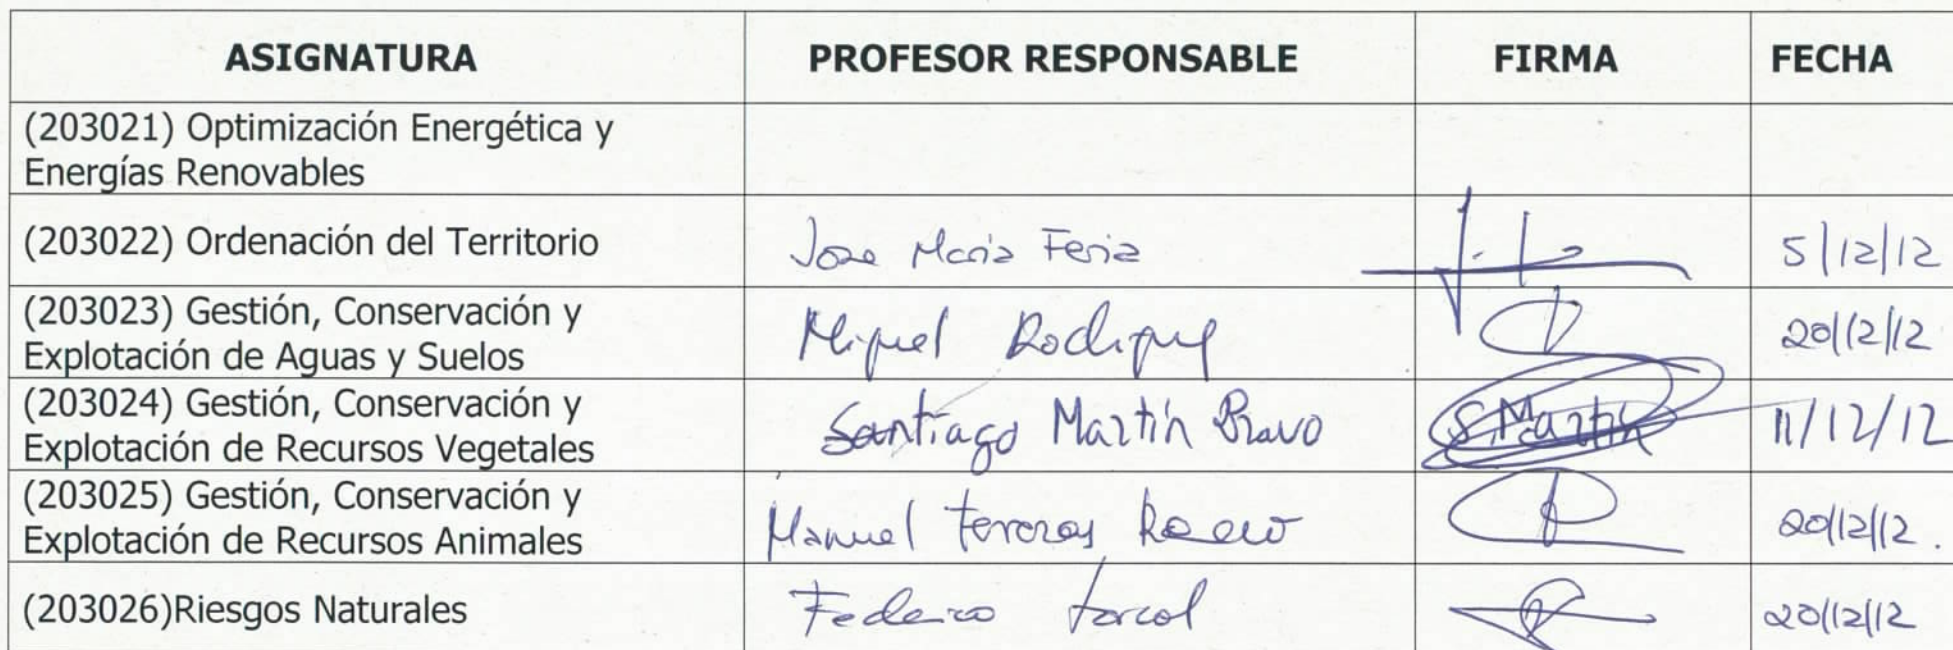 ASIGNATURA PROFESOR RESPONSABLE FIRMA FECHA
(203021) Optimización Energética y
Energías Renovables
(203022) Ordenación del Territorio Jose María Feria 5/12/12
(203023) Gestión, Conservación y
Explotación de Aguas y Suelos Miguel 20/12/12
(203024) Gestión, Conservación y
Explotación de Recursos Vegetales Santiago Martín Bravo S. Martín 11/12/12
(203025) Gestión, Conservación y
Explotación de Recursos Animales Manuel 20/12/12.
(203026)Riesgos Naturales Federico 20/12/12